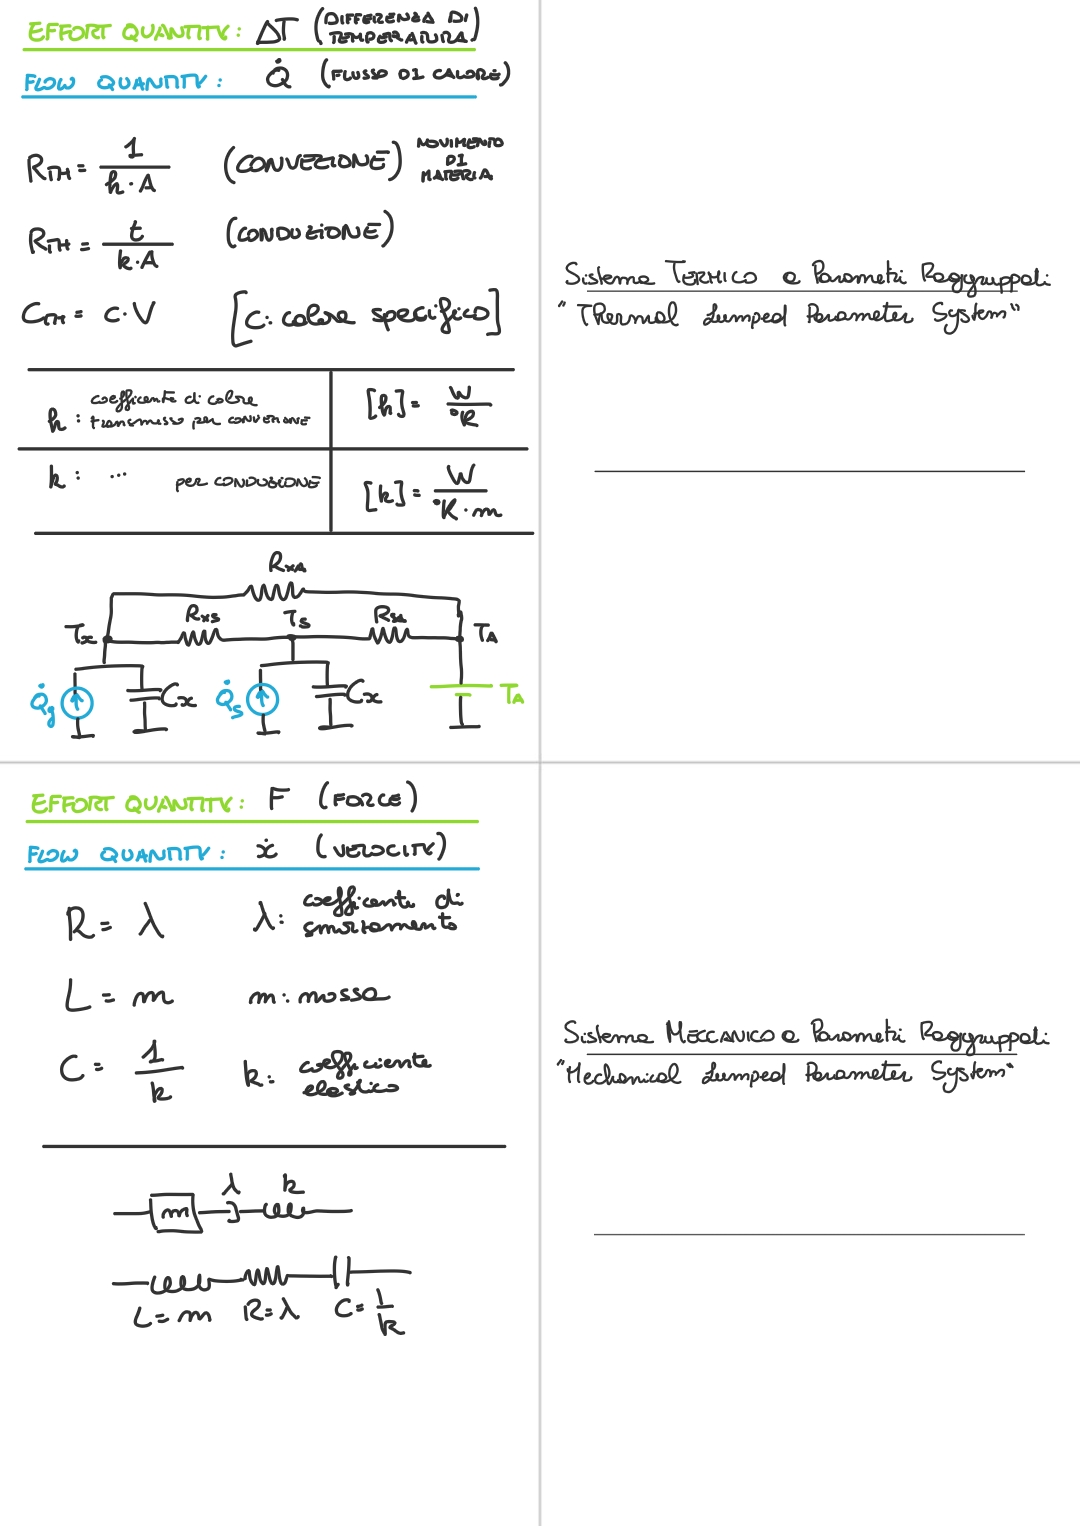 EFFORT QUANTITY: ΔT (DIFFERENZA DI TEMPERATURA)
FLOW QUANTITY: Q̇ (FLUSSO DI CALORE)
R_TH = 1 / (h · A) (CONVEZIONE) MOVIMENTO DI MATERIA
R_TH = t / (k · A) (CONDUZIONE)
C_TH = c · V [c: calore specifico]
h: coefficiente di calore trasmesso per convenzione [h] = W / °K
k: ... per CONDUZIONE [k] = W / (°K · m)
R_XA
T_x R_XS T_S R_SA T_A
Q̇_g C_x Q̇_s C_x T_A
Sistema TERMICO a Parametri Raggruppati
"Thermal Lumped Parameter System"
EFFORT QUANTITY: F (FORCE)
FLOW QUANTITY: ẋ (VELOCITY)
R = λ λ: coefficiente di smorzamento
L = m m: massa
C = 1 / k k: coefficiente elastico
m λ k
L = m R = λ C = 1 / k
Sistema MECCANICO a Parametri Raggruppati
"Mechanical Lumped Parameter System"